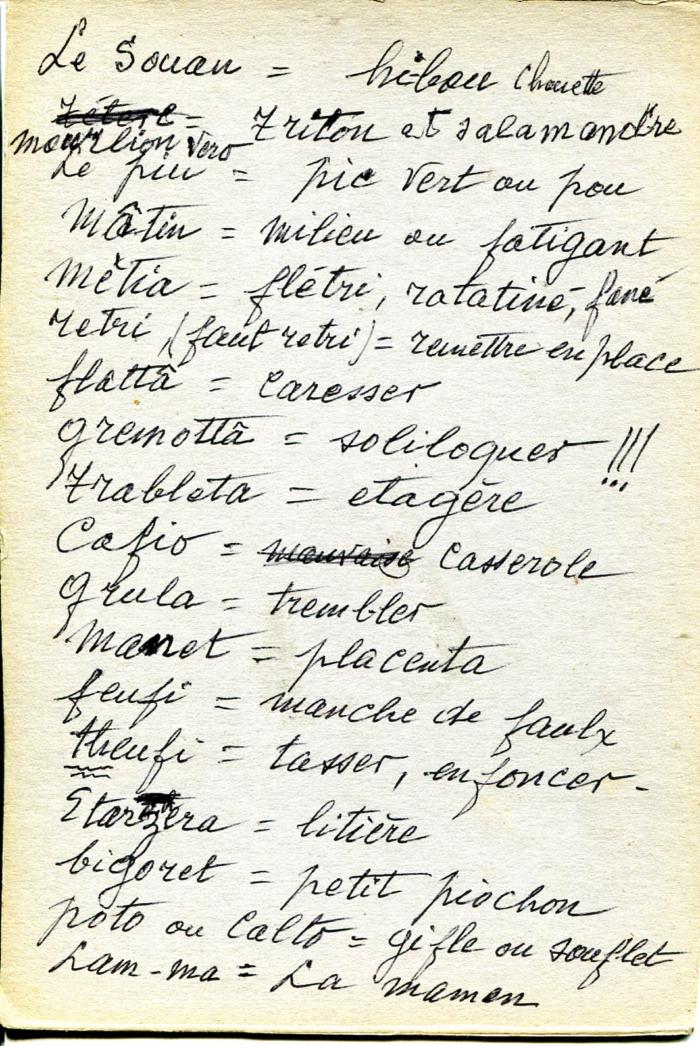 Le Souan = hibou chouette
mourlion vero = Triton et salamandre
Le piu = pic vert ou pou
mâtin = milieu ou fatigant
mètia = flétri, ratatiné, fané
retri (faut retri) = remettre en place
flattâ = caresser
gremottâ = soliloquer !!!
Trableta = etagère
Cafio = casserole
grula = trembler
manet = placenta
feufi = manche de faulx
theufi = tasser, enfoncer -
= litière
bigoret = petit piochon
poto ou calto = gifle ou souflet
Lam-ma = La maman